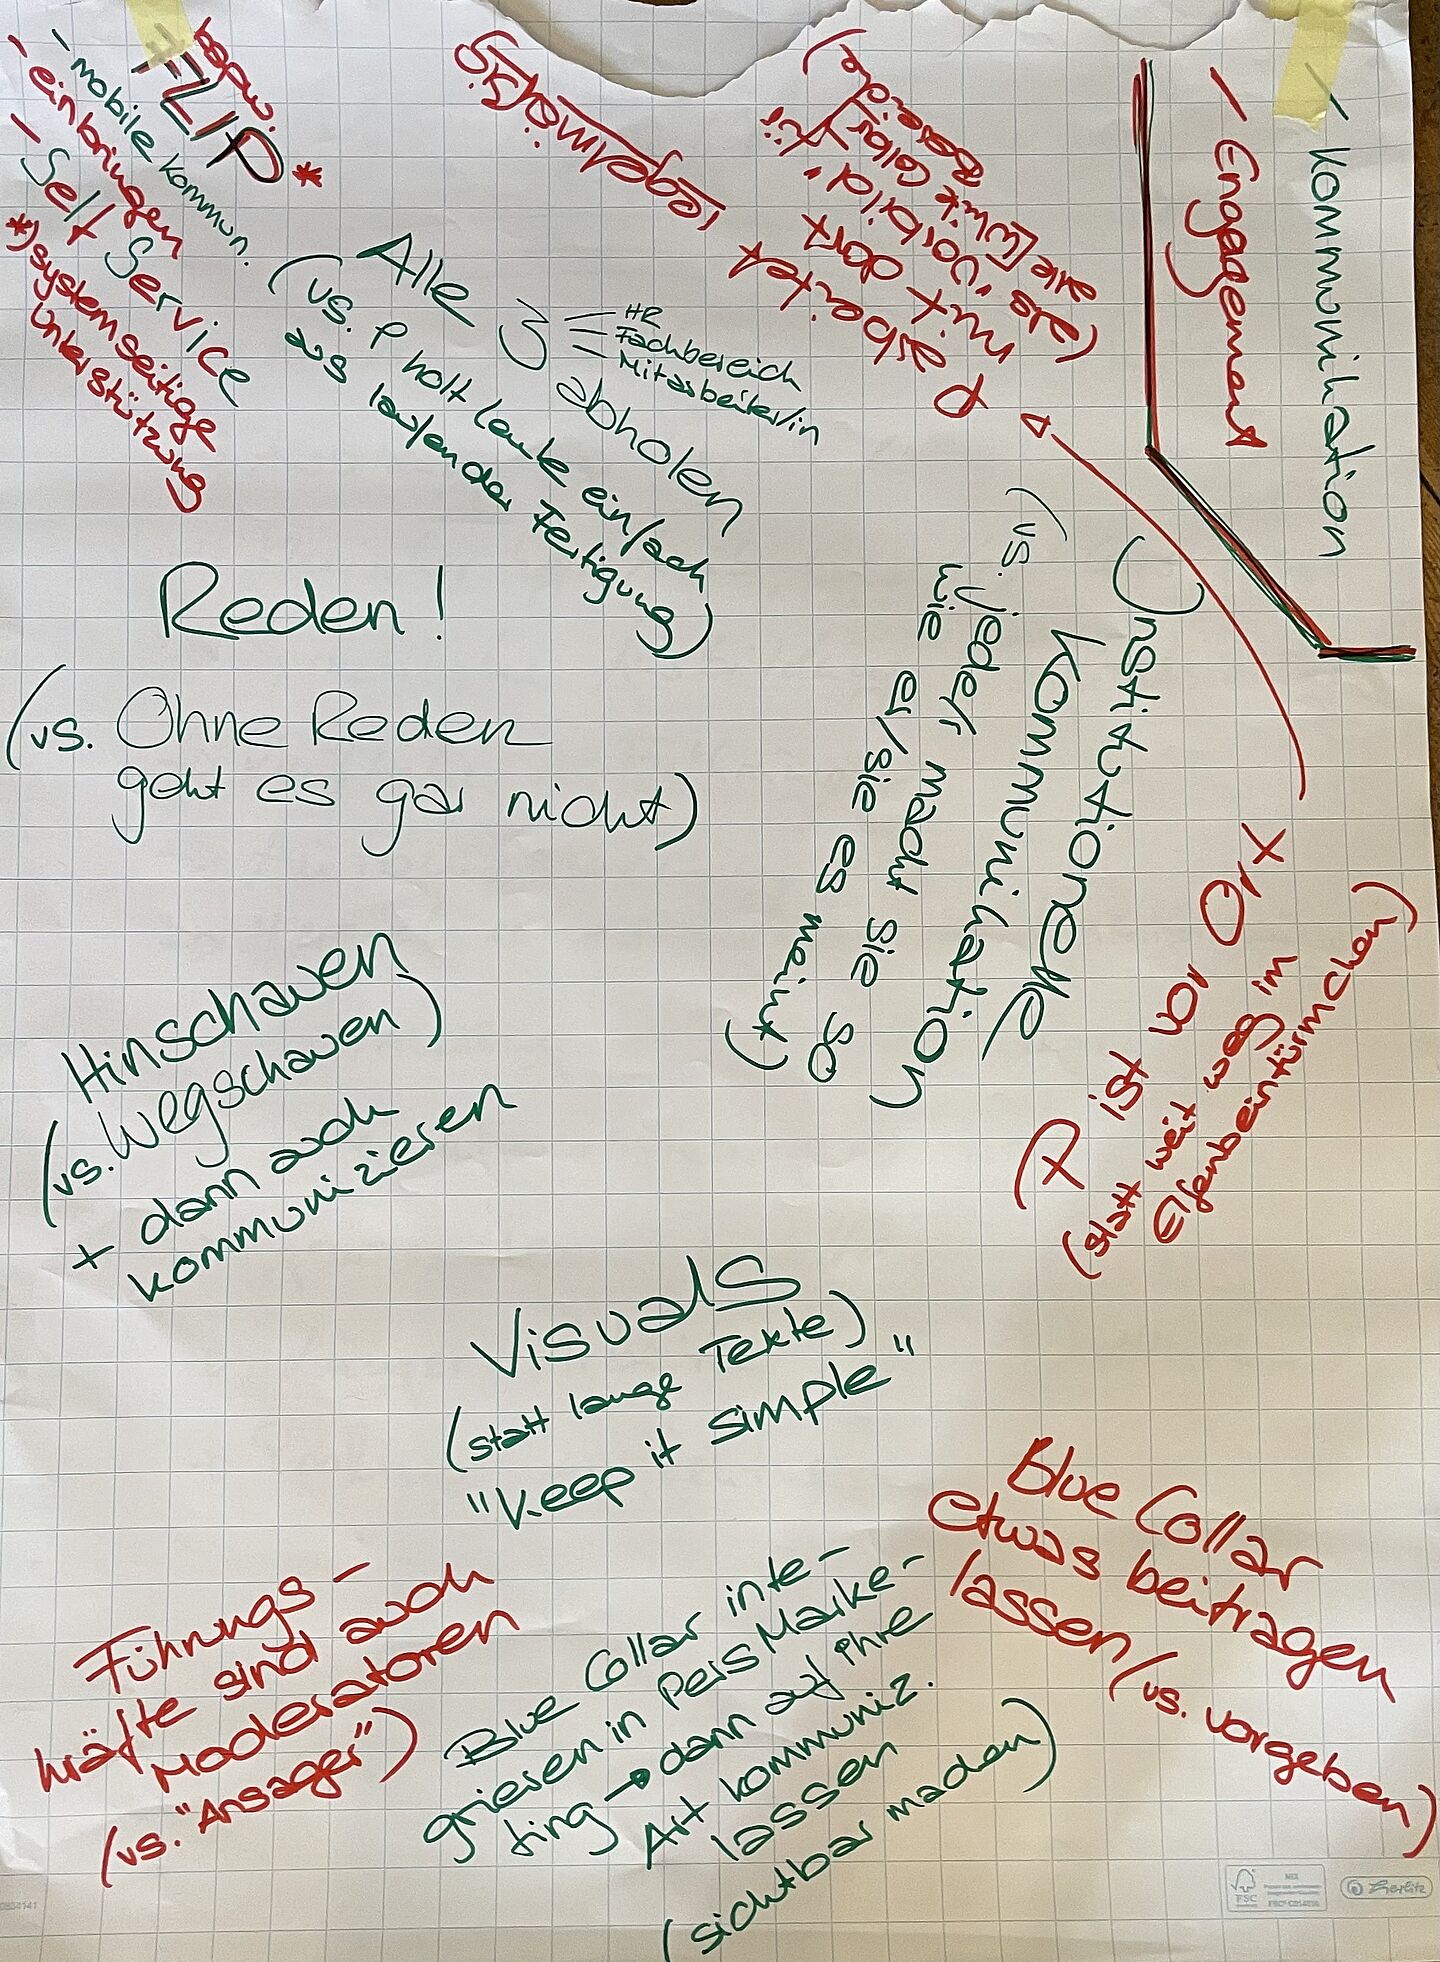 - Kommunikation
- Engagement
bspw.
FZIP *
- mobile Kommun.
- einbringen
- Self Service
*) systemseitige
Unterstützung
Alle 3 abholen
HR
Fachbereich
Mitarbeiter/in
(vs. P holt Leute einfach
aus laufender Fertigung)
P arbeitet regelmäßig
mit dort
(als "Vorbild" für
alle White Collar
Bereiche)
Institutionelle
Kommunikation
(vs. jede/r macht sie so
wie er/sie es meint)
Reden!
(vs. Ohne Reden
geht es gar nicht)
P ist vor Ort
(statt weit weg im
Elfenbeintürmchen)
Hinschauen
(vs. Wegschauen)
+ dann auch
kommunizieren
Visuals
(statt lange Texte)
"Keep it simple"
Blue Collar
etwas beitragen
lassen (vs. vorgeben)
Führungs-
kräfte sind auch
Moderatoren
(vs. "Ansager")
Blue Collar inte-
grieren in PersMarke-
ting → dann auf ihre
Art kommuniz.
lassen
(sichtbar machen)
FSC
MIX
Zierlitz